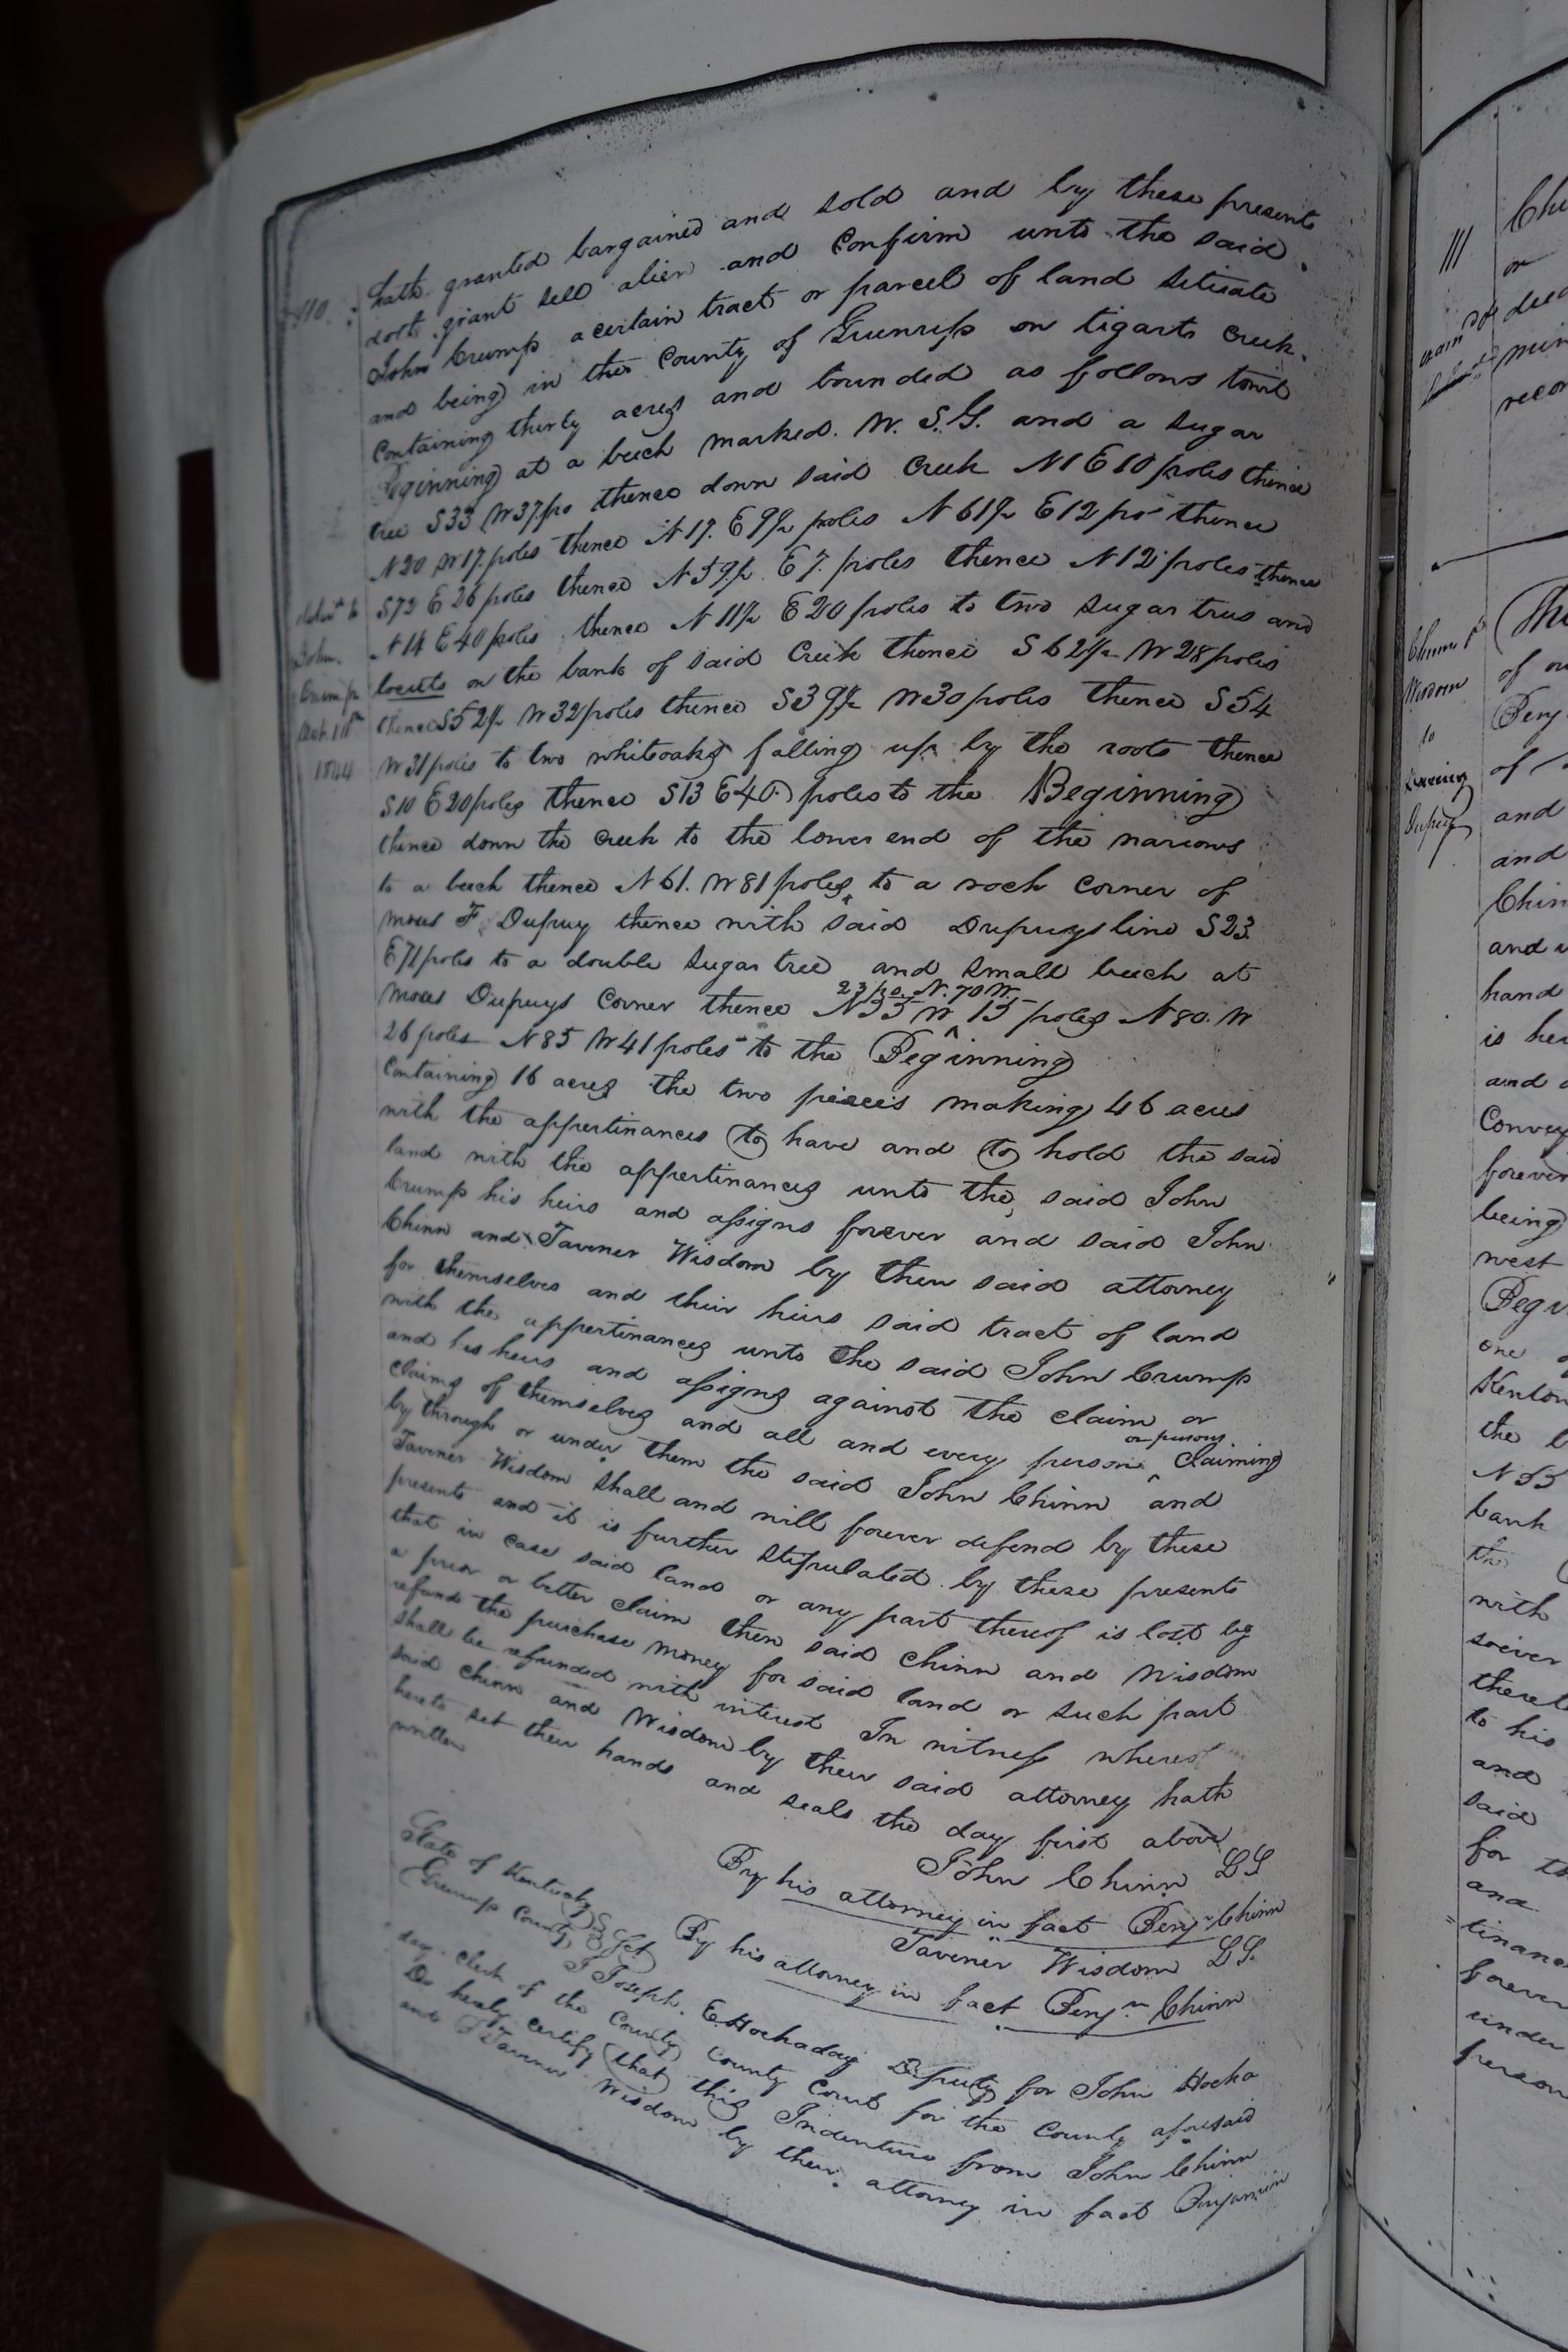 110
hath granted bargained and sold and by these presents
doth grant sell alien and Confirm unto the said
John Crump a certain tract or parcel of land Situate
and being in the County of Greenup on tigarts Creek
Containing thirty acres and bounded as follows towit
Beginning at a beech marked W. S. G. and a Sugar
tree S33 W37po thence down said Creek N1 E10 poles thence
N20 W17 poles thence N17 E9½ poles N61½ E12 po thence
S72 E26 poles thence N59½ E7 poles thence N12 poles thence
N14 E40 poles thence N11½ E20 poles to two Sugar trees and
locusts on the bank of said Creek thence S62½ W28 poles
thence S52½ W32 poles thence S39½ W30 poles thence S54
W31 poles to two whiteoaks falling up by the roots thence
S10 E20 poles thence S13 E40 poles to the Beginning
thence down the Creek to the lower end of the narrows
to a beech thence N61. W81 poles to a rock Corner of
Moses F Dupuy thence with said Dupuys line S23
E71 poles to a double Sugar tree and small beech at
23 po. N. 70 W.
Moses Dupuys Corner thence N35 W 15 poles N80. W
26 poles N85 W41 poles to the Beginning
Containing 16 acres the two pieces making 46 acres
with the appertinances to have and to hold the said
land with the appertinances unto the said John
Crump his heirs and assigns forever and said John
Chinn and Tavener Wisdom by their said attorney
for themselves and their heirs said tract of land
with the appertinances unto the said John Crump
and his heirs and assigns against the claim or
claims of themselves and all and every person or persons Claiming
by through or under them the said John Chinn and
Tavener Wisdom Shall and will forever defend by these
presents and it is further Stipulated by these presents
that in case said land or any part thereof is lost by
a prior or better claim then said Chinn and Wisdom
refund the purchase money for said land or such part
shall be refunded with interest In witness whereof
said Chinn and Wisdom by their said attorney hath
hereto set their hands and seals the day first above
written
John Chinn LS
By his attorney in fact Benjn Chinn
Tavener Wisdom LS.
By his attorney in fact Benjn Chinn
State of Kentucky
Greenup County Sct
I Joseph E Hockaday Deputy for John Hocka
day Clerk of the County County Court for the County aforesaid
Do hereby certify that this Indenture from John Chinn
and Tavener Wisdom by their attorney in fact Benjamin
John
Crump
1844
III
Chinn &
Wisdom
to
Dupuy
of
and
and
Chin
and
hand
is
and
forever
being
west
one
the
N 55
bank
with
to his
and
said
for
and
forever
under
person